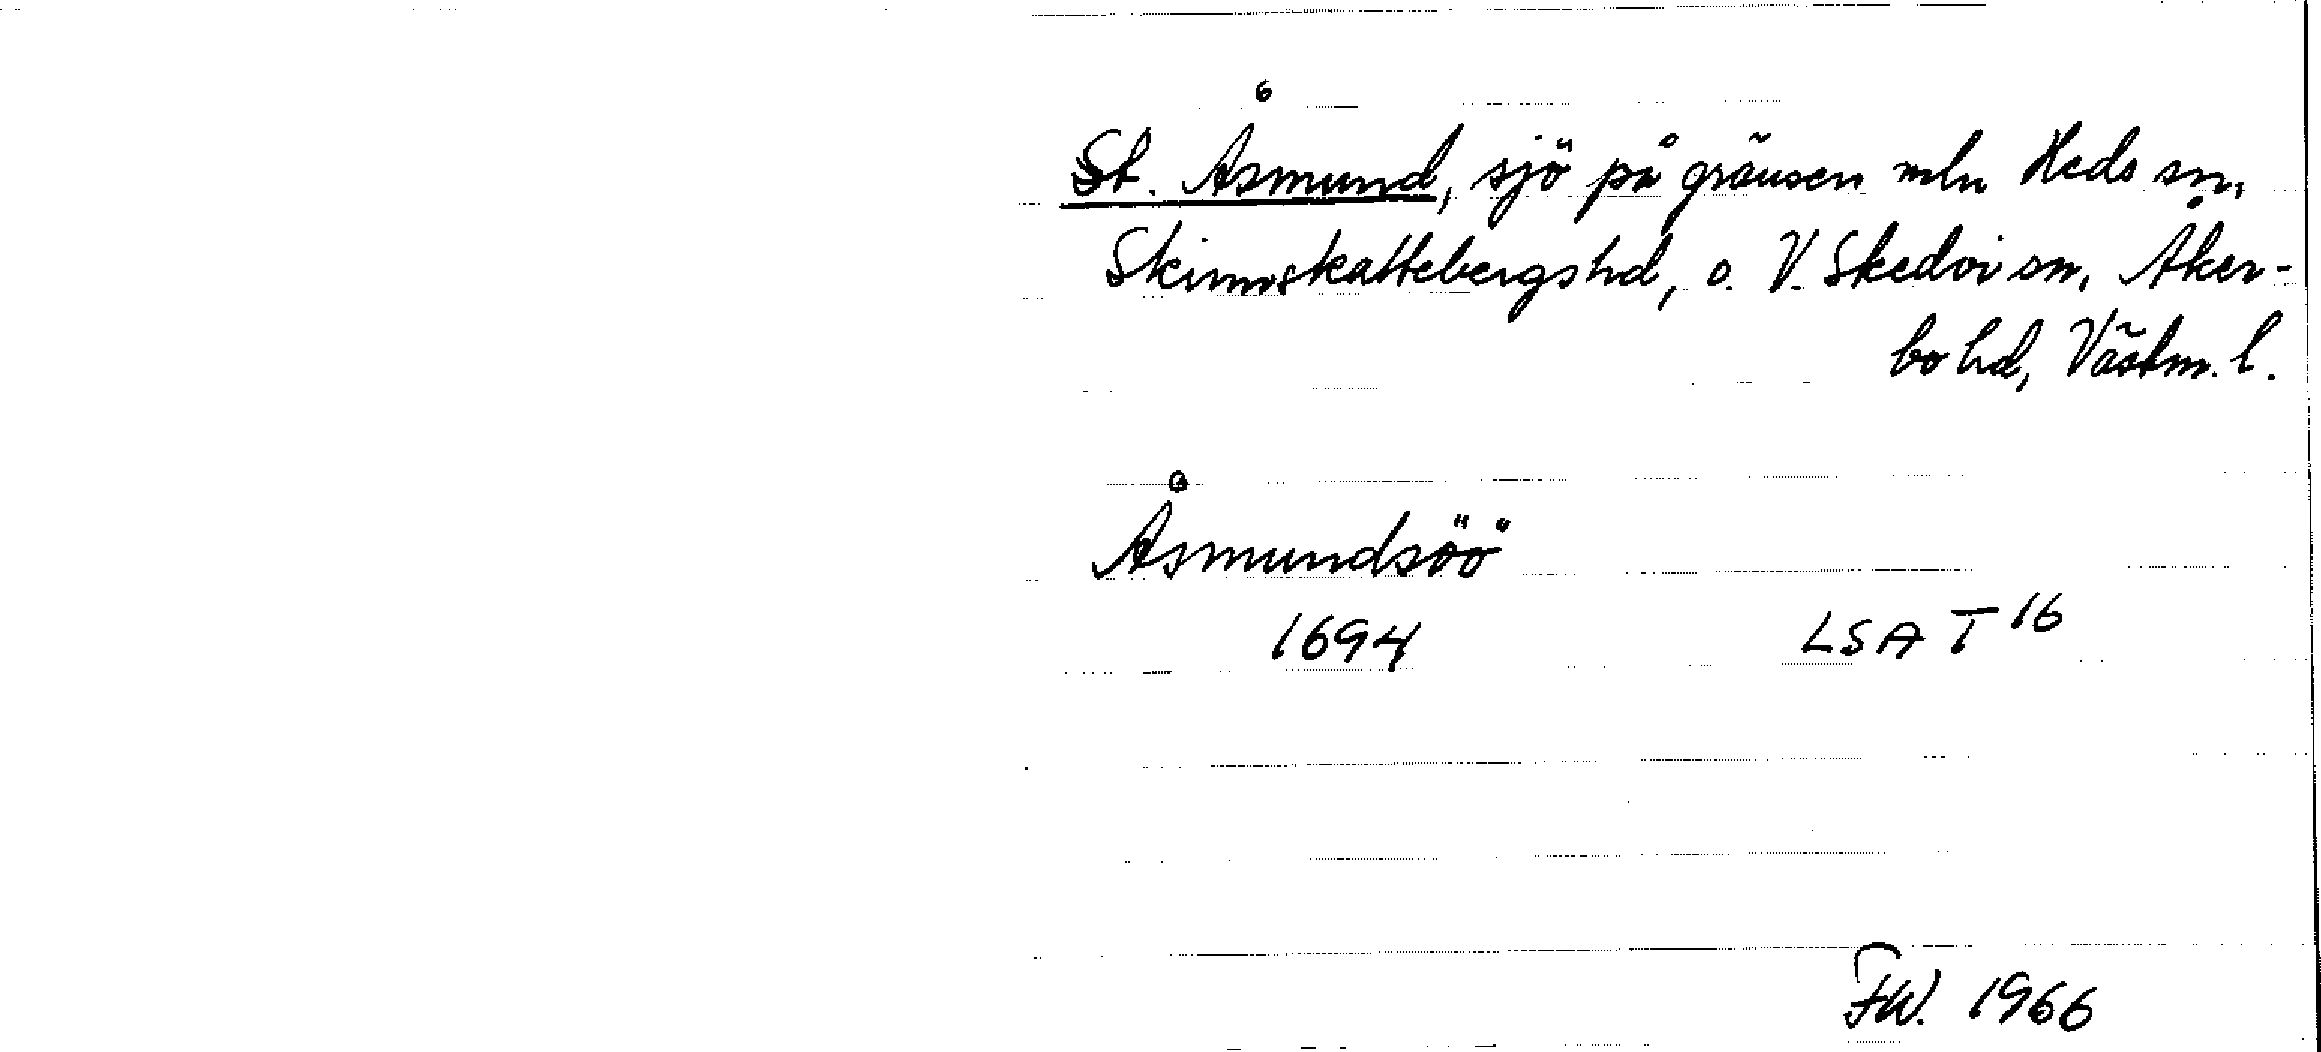 St. Åsmund, sjö på gränsen mln Heds sn,
Skinnskattebergs hd, o. V. Skedvi sn, Åker-
bo hd, Västm. l.
Åsmundsöö
1694 LSA T 16
FW. 1966